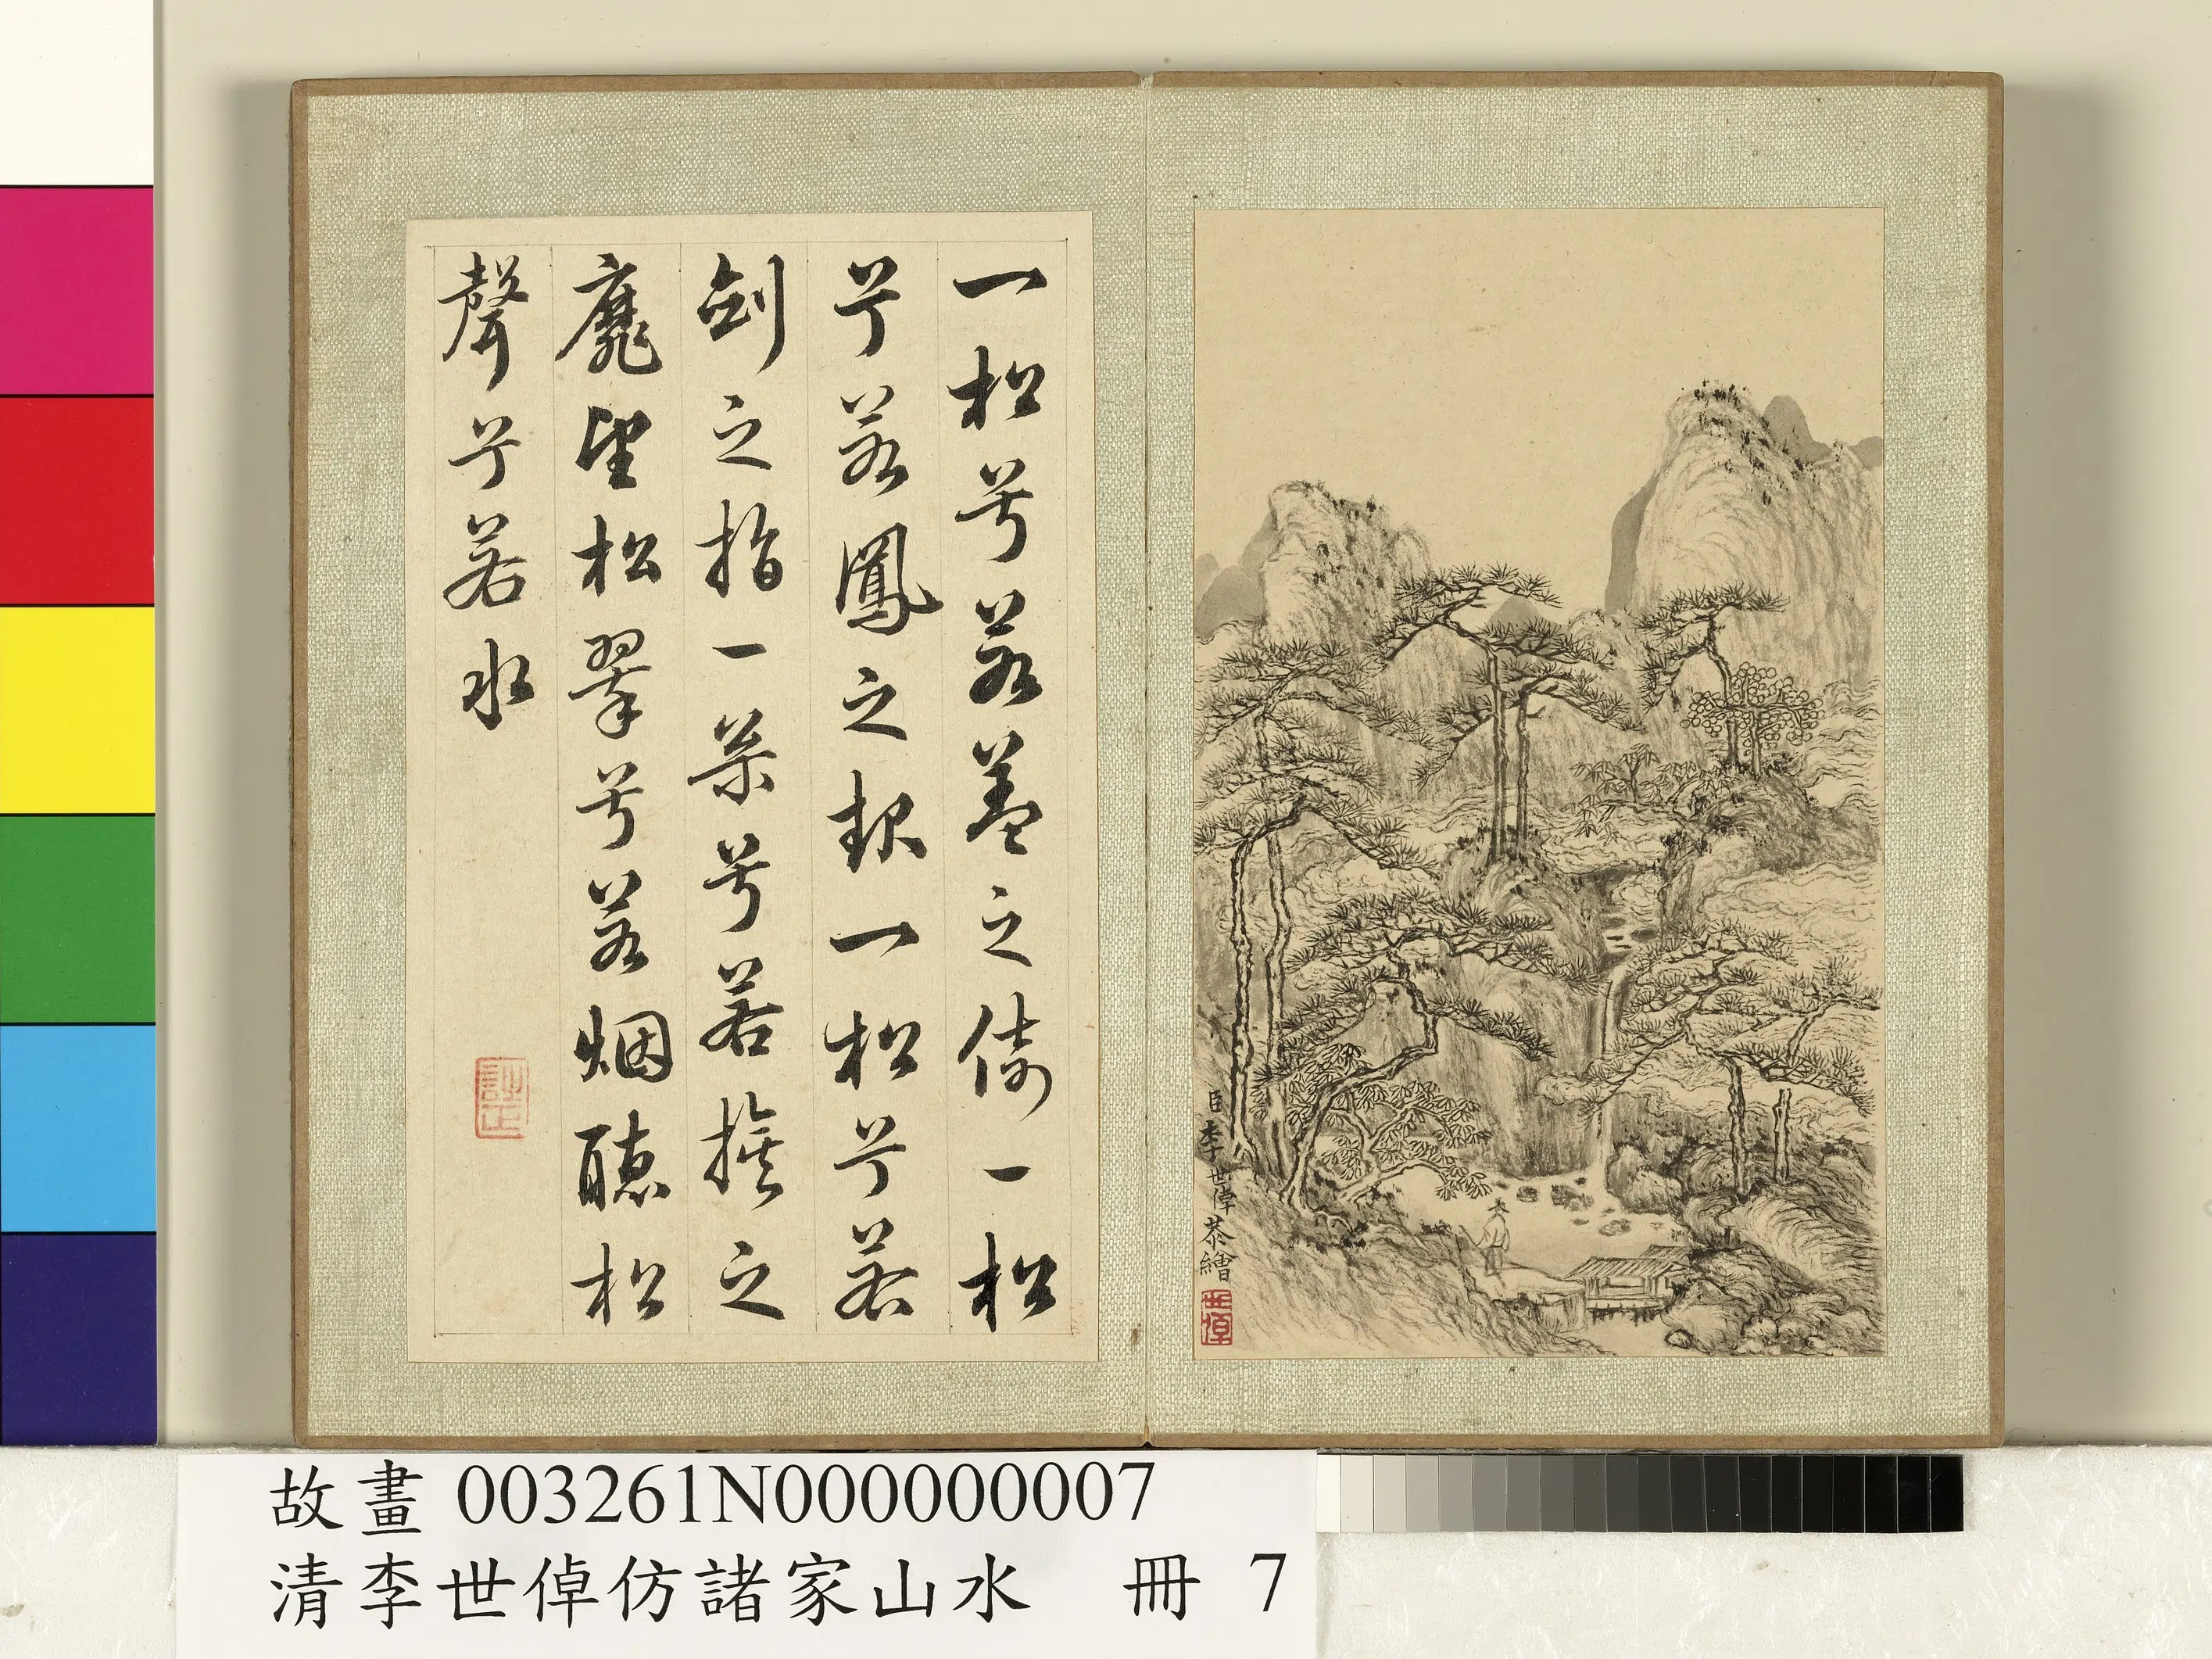 一松兮若蓋之倚一松
兮若鳳之一松兮若
劍之指一叢兮若之
靡望松翠兮若烟聽松
聲兮若水
臣李世倬恭繪
世倬
故畫 003261N000000007
清李世倬仿諸家山水 冊 7